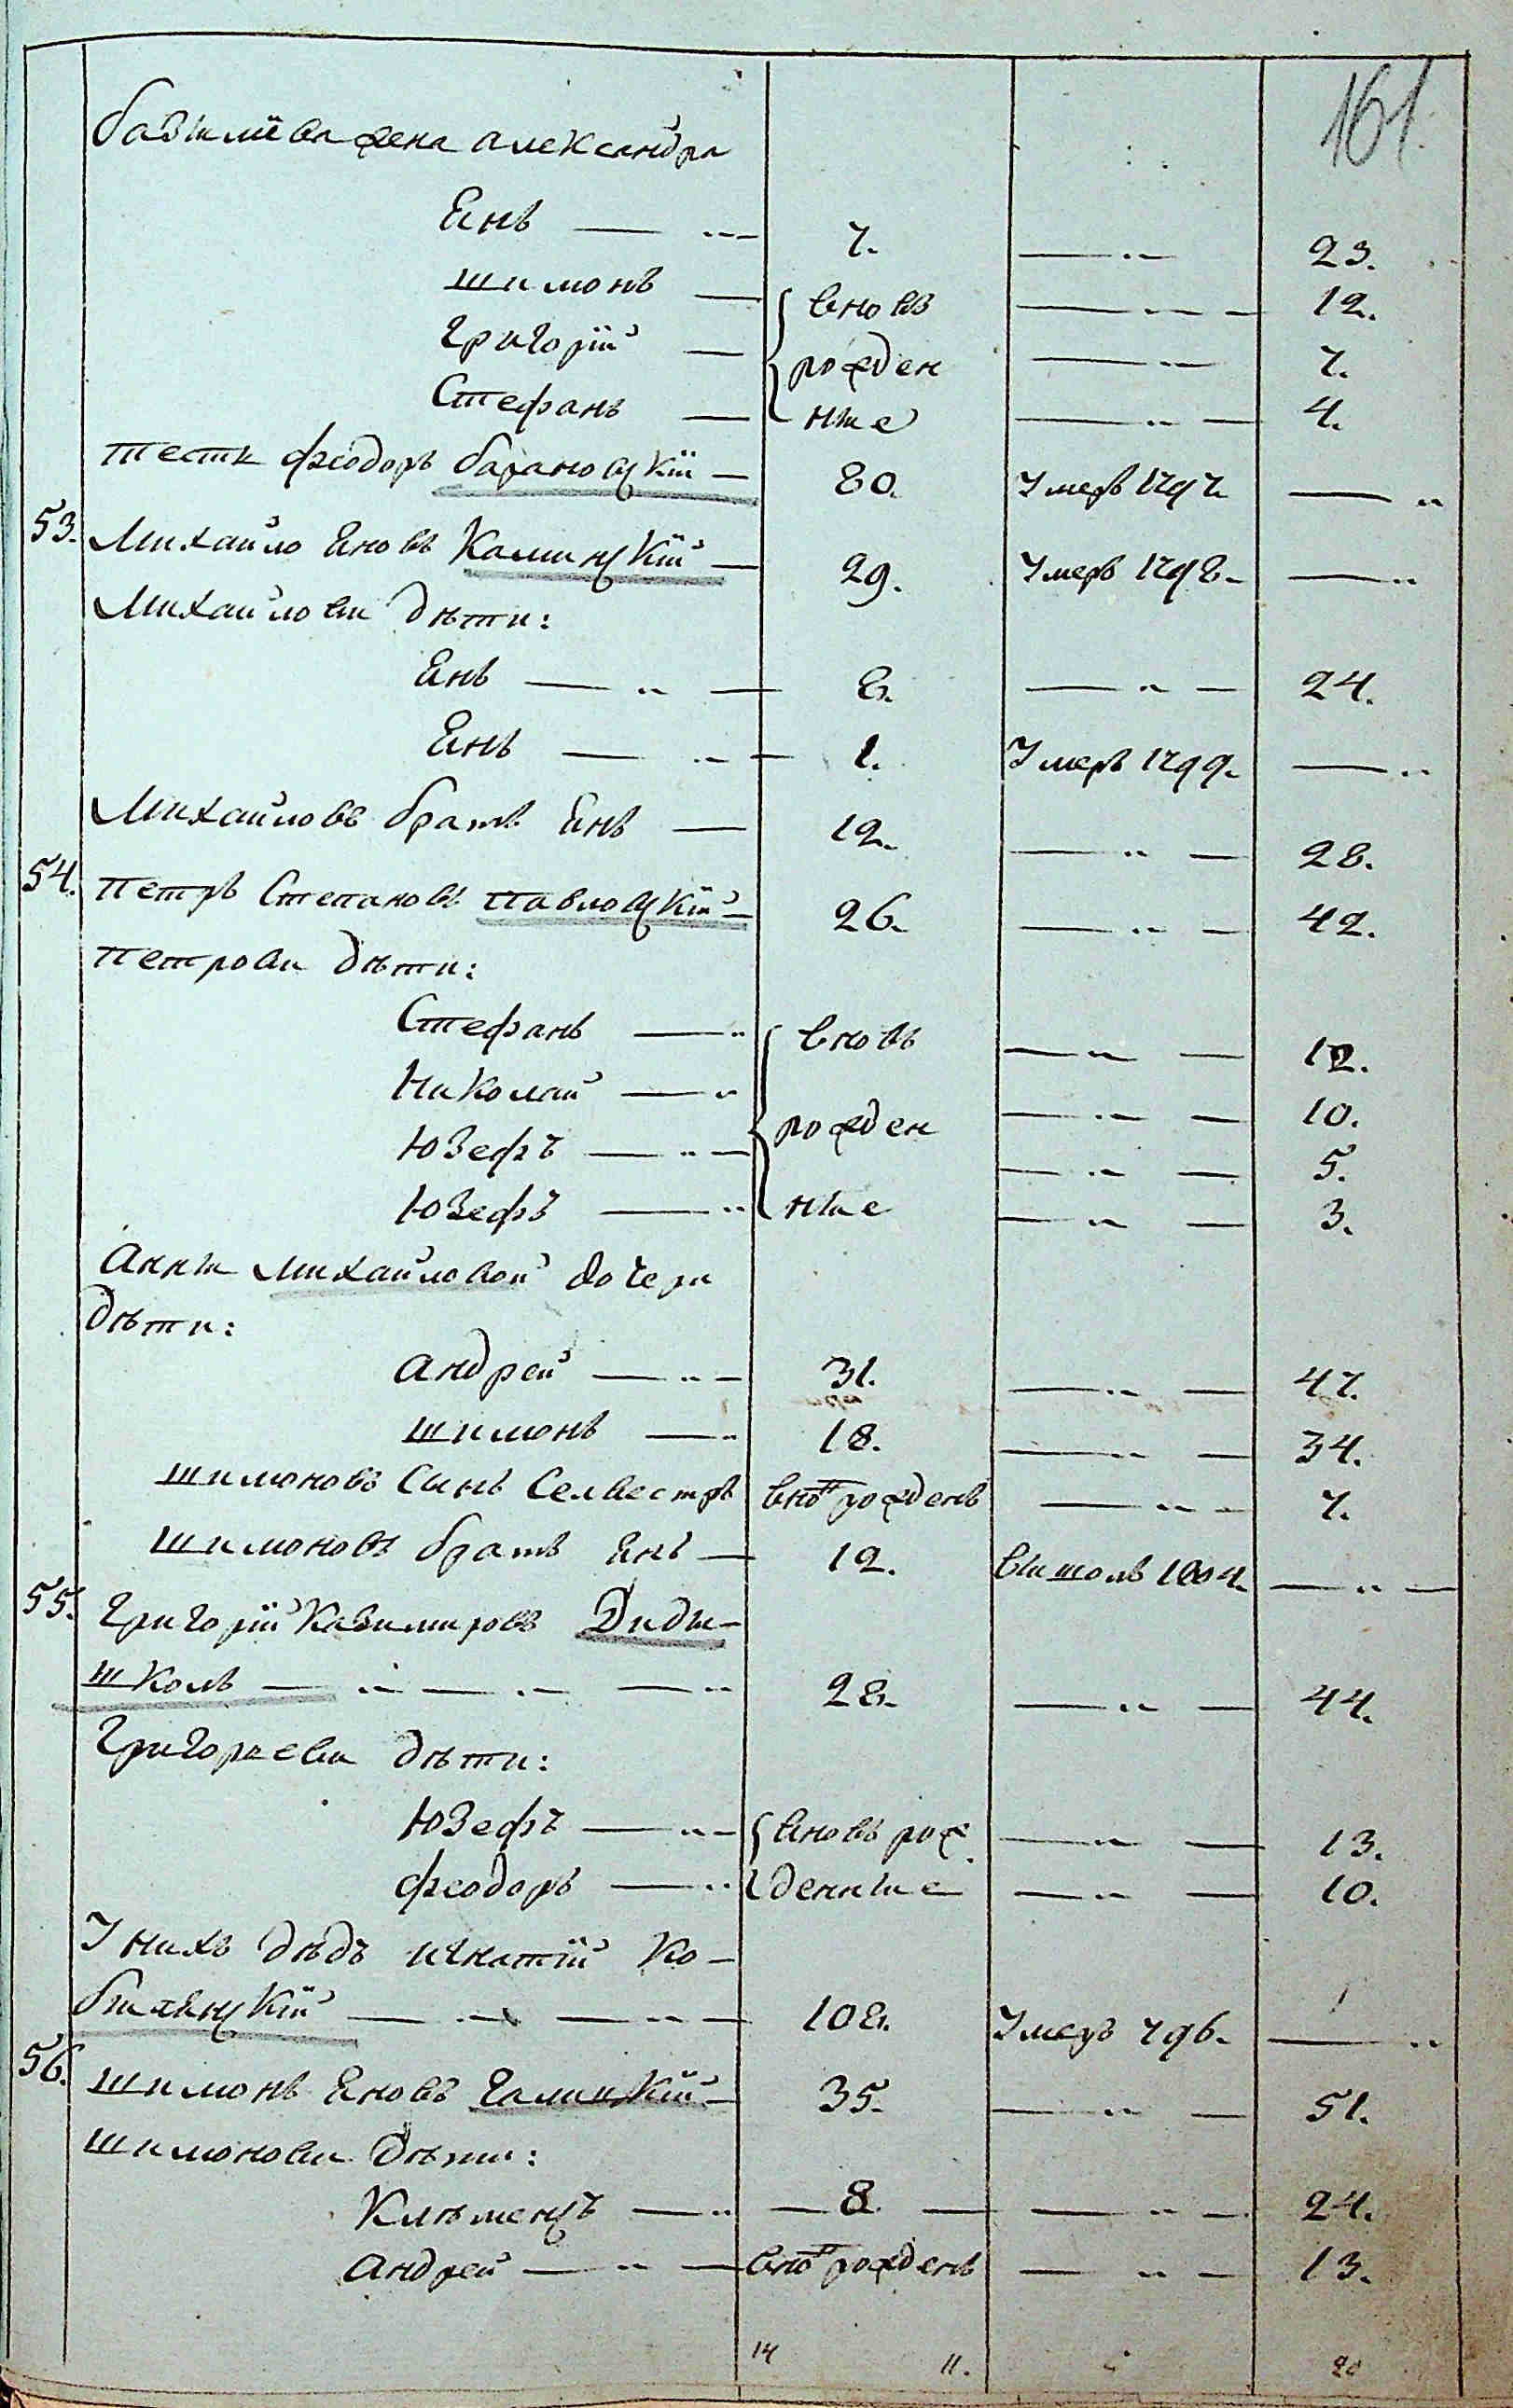 161.
базылiева жена александра
Янъ — 7. — 23.
шимонъ — вновь — 12.
григорiй — рожден — 7.
Стефанъ — ные — 4.
тесть Феодоръ барановскiй — 80. Умеръ 1797. —
53. Михайло Яновъ Каминскiй — 29. Умеръ 1798. —
Михайловы дѣти:
Янъ — 8. — 24.
Янъ — 1. Умеръ 1799. —
Михайловъ братъ Янъ — 12. — 28.
54. петръ Степановъ павловскiй — 26. — 42.
петровы дѣти:
Стефанъ — вновь — 12.
Николай — рожден — 10.
Юзефъ — 5.
Юзефъ — ные — 3.
Анны Михайловой дочери
дѣти:
андрей — 31. — 47.
шимонъ — 18. — 34.
шимоновъ Сынъ Селвестръ вно рожденъ — 7.
шимоновъ братъ Янъ — 12. вышолъ 1804. —
55. григорiй Казимировъ Диды-
школъ — 28. — 44.
григорьевы дѣти:
Юзефъ — вновь рож — 13.
Феодоръ — денные — 10.
У нихъ дѣдъ игнатiй Ко-
былянскiй — 108. Умеръ 796. —
56. шимонъ Яновъ галинскiй — 35. — 51.
шимоновы дѣти:
Клѣменсъ — 8 — 24.
андрей — вно рожденъ — 13.
14 11. 20